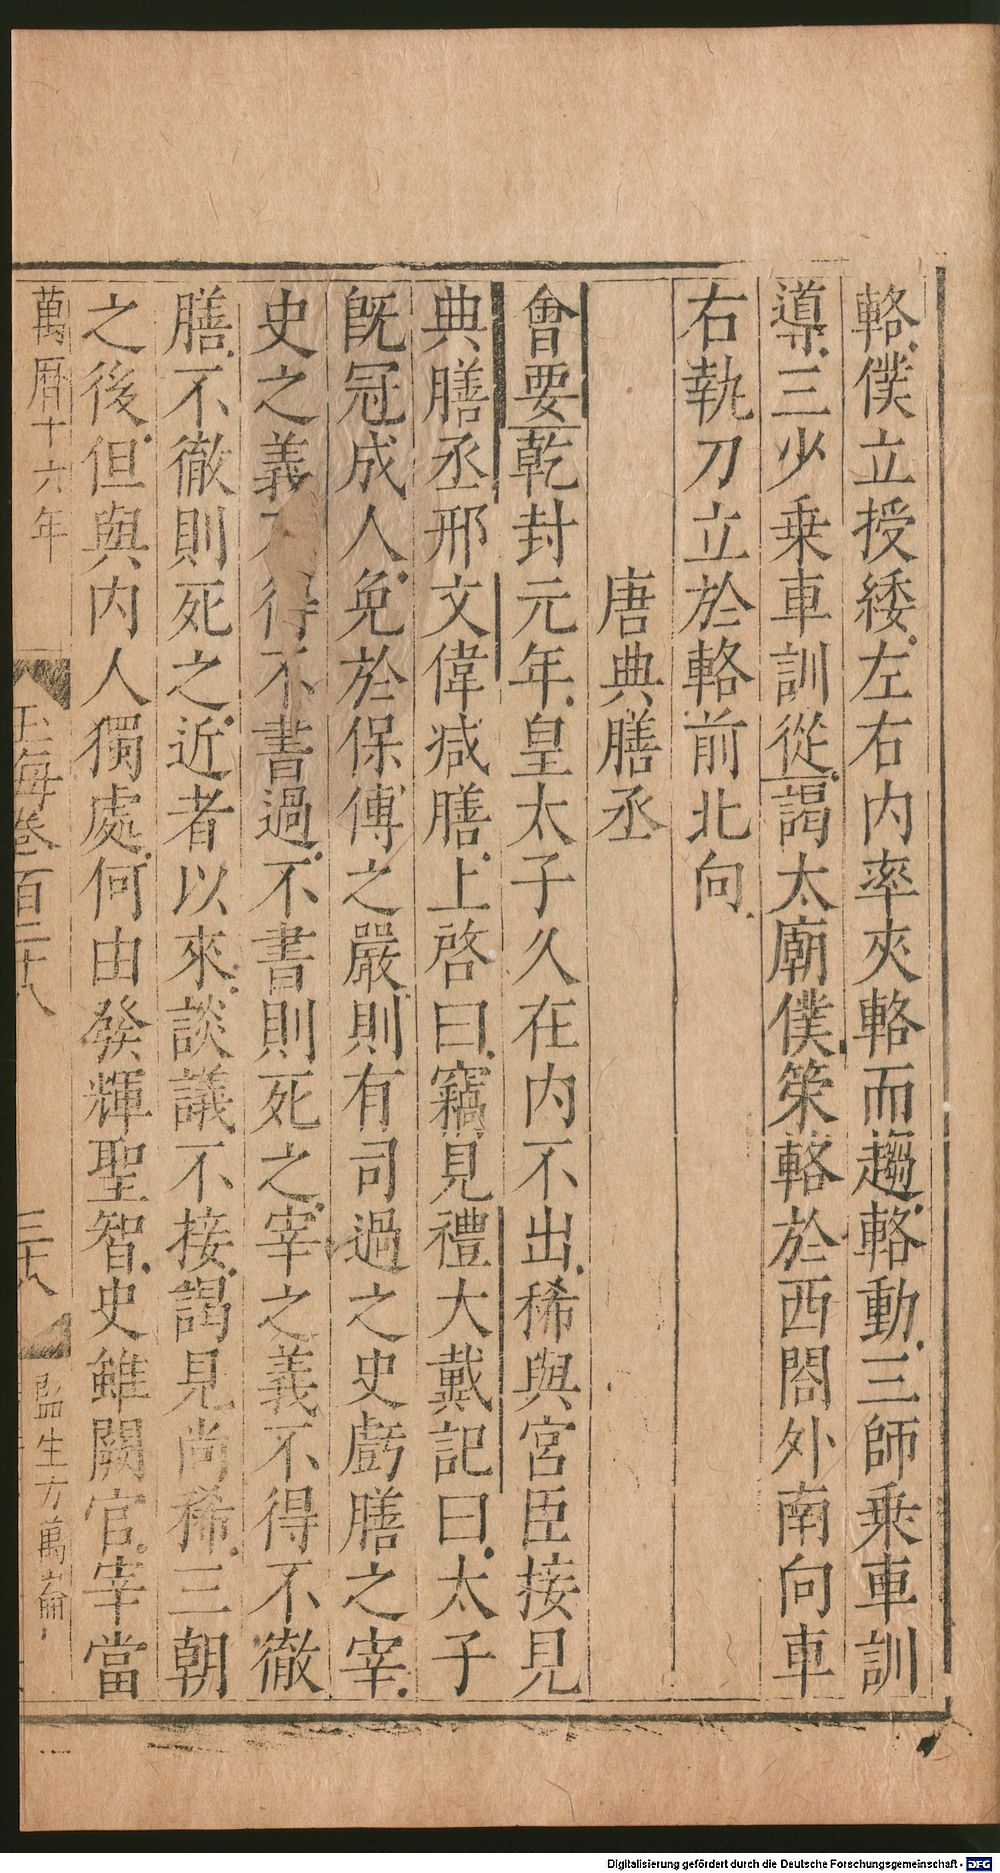 輅僕立授綏左右内率夾輅而趨輅動三師乗車訓
導三少乗車訓從謁太廟僕策輅於西閤外南向車
右執刀立於輅前北向
唐典膳丞
會要乾封元年皇太子久在内不出稀與宮臣接見
典膳丞邢文偉减膳上啓曰竊見禮大戴記曰太子
既冠成人免於保傅之嚴則有司過之史虧膳之宰
史之義得不書過不書則死之宰之義不得不徹
膳不徹則死之近者以來談議不接謁見尚稀三朝
之後但與内人獨處何由發輝聖智史雖闕官宰當
萬曆十六年 玉海卷一百二十八 三十八 監生方萬崙
Digitalisierung gefördert durch die Deutsche Forschungsgemeinschaft - DFG